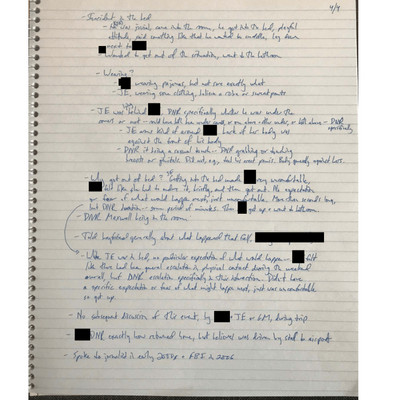 4/4
- Incident in the bed
- He was jovial, came into the room, he got into the bed, playful
attitude, said something like that he wanted to cuddle, lay down
next to
- wanted to get out of the situation, went to the bathroom
- Wearing?
- wearing pajamas, but not sure exactly what
- JE wearing some clothing, believes a robe or sweatpants
- JE was behind DNR specifically whether he was under the
covers or not - could have been under covers, or one above other under, or both above - DNR specifically
- JE arms kind of around back of her body was
against the front of his body
- DNR it being a casual touch - DNR grabbing or touching
breasts or genitals. Did not, e.g., feel his erect penis. Body generally against hers.
- Why get out of bed? JE getting into the bed made very uncomfortable.
felt like she had to endure it, briefly, and then got out. No expectation
or fear of what would happen next, just uncomfortable. More than seconds long,
but DNR duration - some period of minutes. Then got up + went to bathroom
- DNR Maxwell being in the room
- Told boyfriend generally about what happened
- When JE was in bed, no particular expectation of what would happen - felt
like there had been general escalation in physical contact during the weekend
overall, but DNR escalation specifically in this interaction. Didn't have
a specific expectation or fear of what might happen next, just was uncomfortable
so got up.
- No subsequent discussion of this event, by JE or GM, during trip
- DNR exactly how returned home, but believes was driven by staff to airport
- Spoke to journalist in early + FBI in 2006